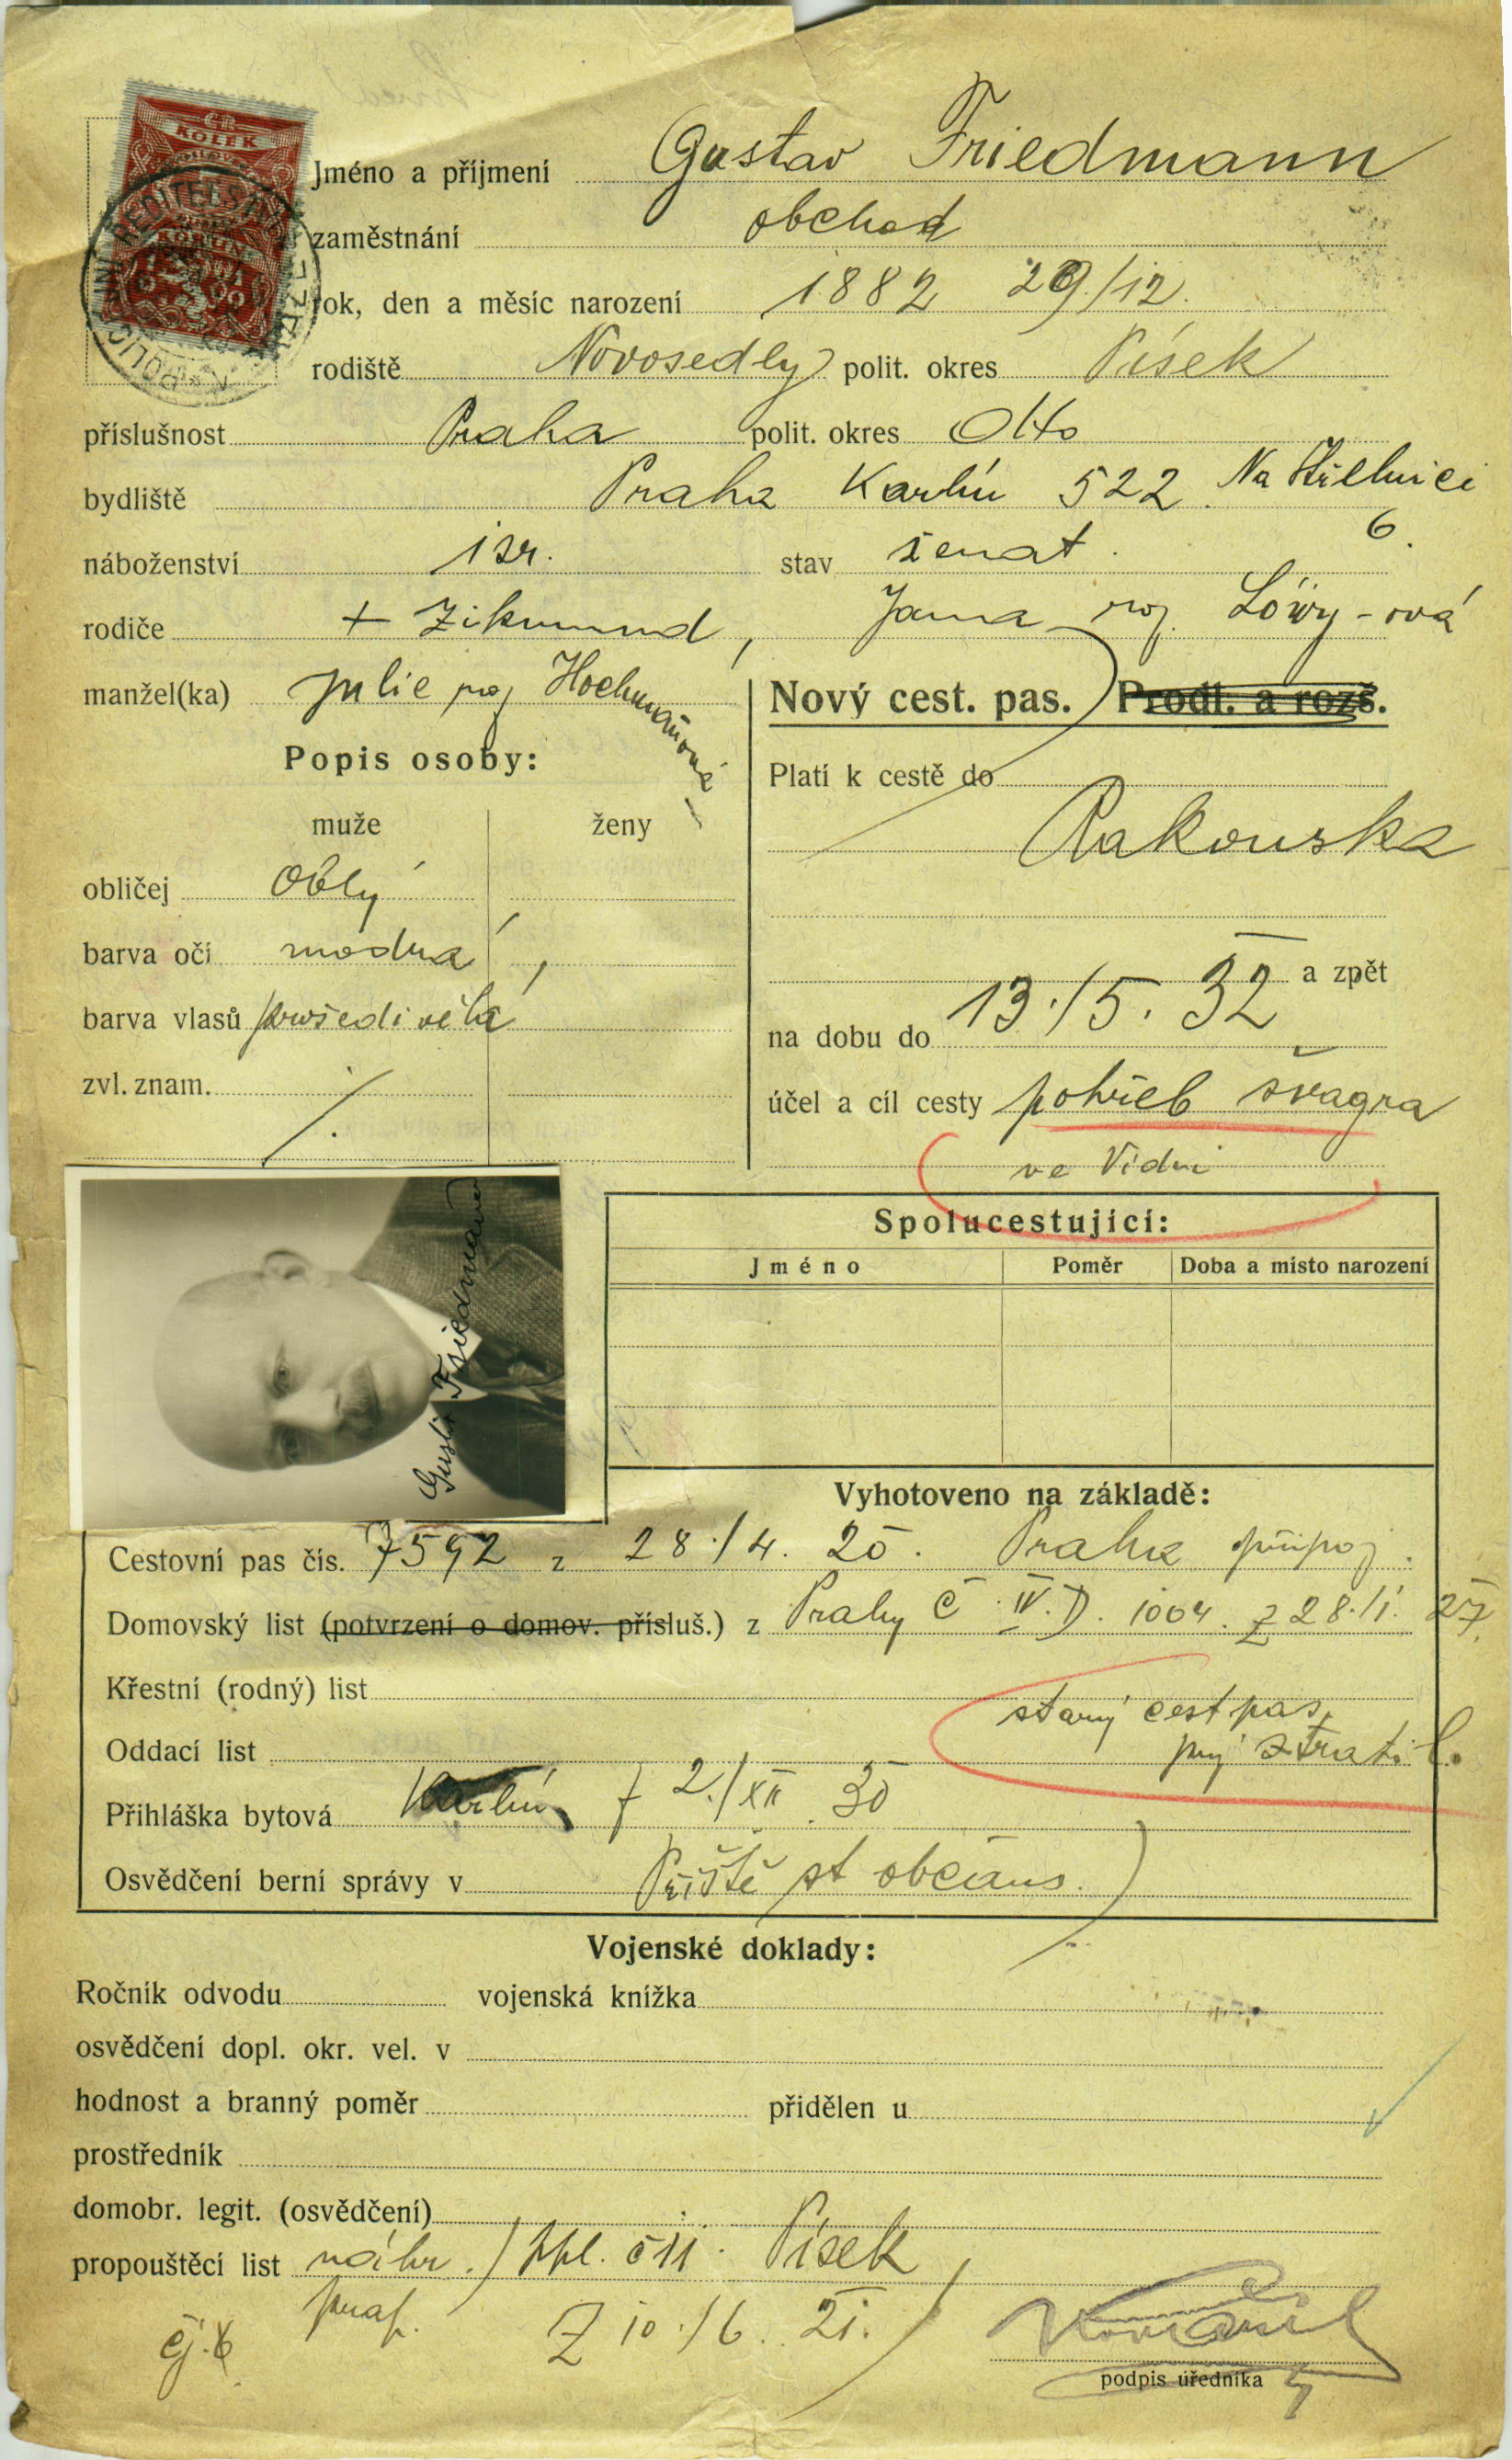 KOLEK
Jméno a příjmení Gustav Friedmann
zaměstnání obchod
rok, den a měsíc narození 1882 29/12.
rodiště Novosedly polit. okres Písek
příslušnost Praha polit. okres
bydliště Praha Karlín 522 Na Střelnici
6.
náboženství isr. stav ženat.
rodiče + Zikmund, Jana roz. Löwy-ová
manžel(ka) Julie roz Hochmanová
Nový cest. pas. Prodl. a rozš.
Popis osoby:
Platí k cestě do
muže ženy
Rakouska
obličej oblý
barva očí modrá
a zpět
barva vlasů prošedivělá
na dobu do 13./5. 32
zvl. znam. /.
účel a cíl cesty pohřeb švagra
ve Vídni
Gustav Friedmann
Spolucestující:
Jméno Poměr Doba a místo narození
Vyhotoveno na základě:
Cestovní pas čís. 7592 z 28./4. 20. Praha připoj.
Domovský list (potvrzení o domov. přísluš.) z Prahy č. IV. D. 1004. z 28./1. 27.
Křestní (rodný) list
starý cest pas,
Oddací list
prý ztratil.
Přihláška bytová Karlín z 2./XII. 30
Osvědčení berní správy v Příště st občans.
Vojenské doklady:
Ročník odvodu vojenská knížka
osvědčení dopl. okr. vel. v
hodnost a branný poměr přidělen u
prostředník
domobr. legit. (osvědčení)
propouštěcí list náhr. ppl. č 11. Písek,
z 10./6. 21.
podpis úředníka